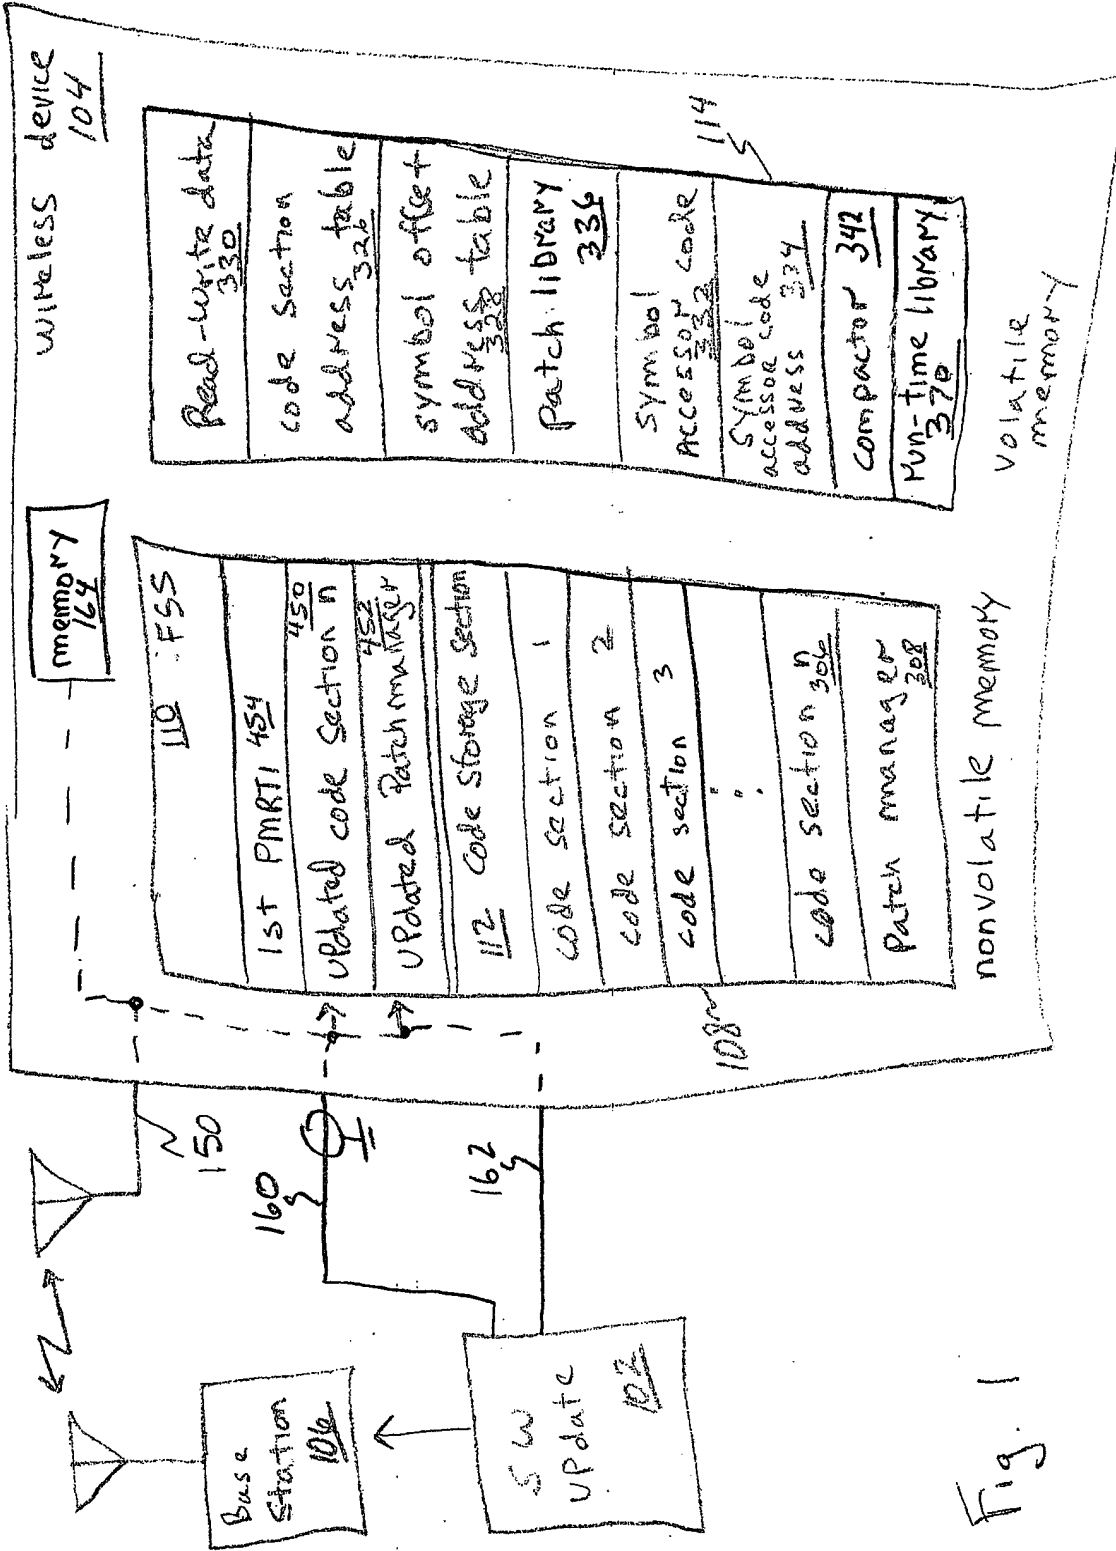 wireless device
104
memory
164
110 FSS
1st PMRTI 454
updated code section n
450
updated Patch manager
452
112 code storage section
code section 1
code section 2
code section 3
code section n
306
Patch manager
308
nonvolatile memory
108
Read-write data
330
code section
address table
326
symbol offset
address table
328
Patch library
336
symbol
Accessor code
332
symbol
accessor code
address 334
compactor 342
run-time library
370
114
volatile
memory
150
160
162
Base
Station
106
SW
update
102
Fig. 1